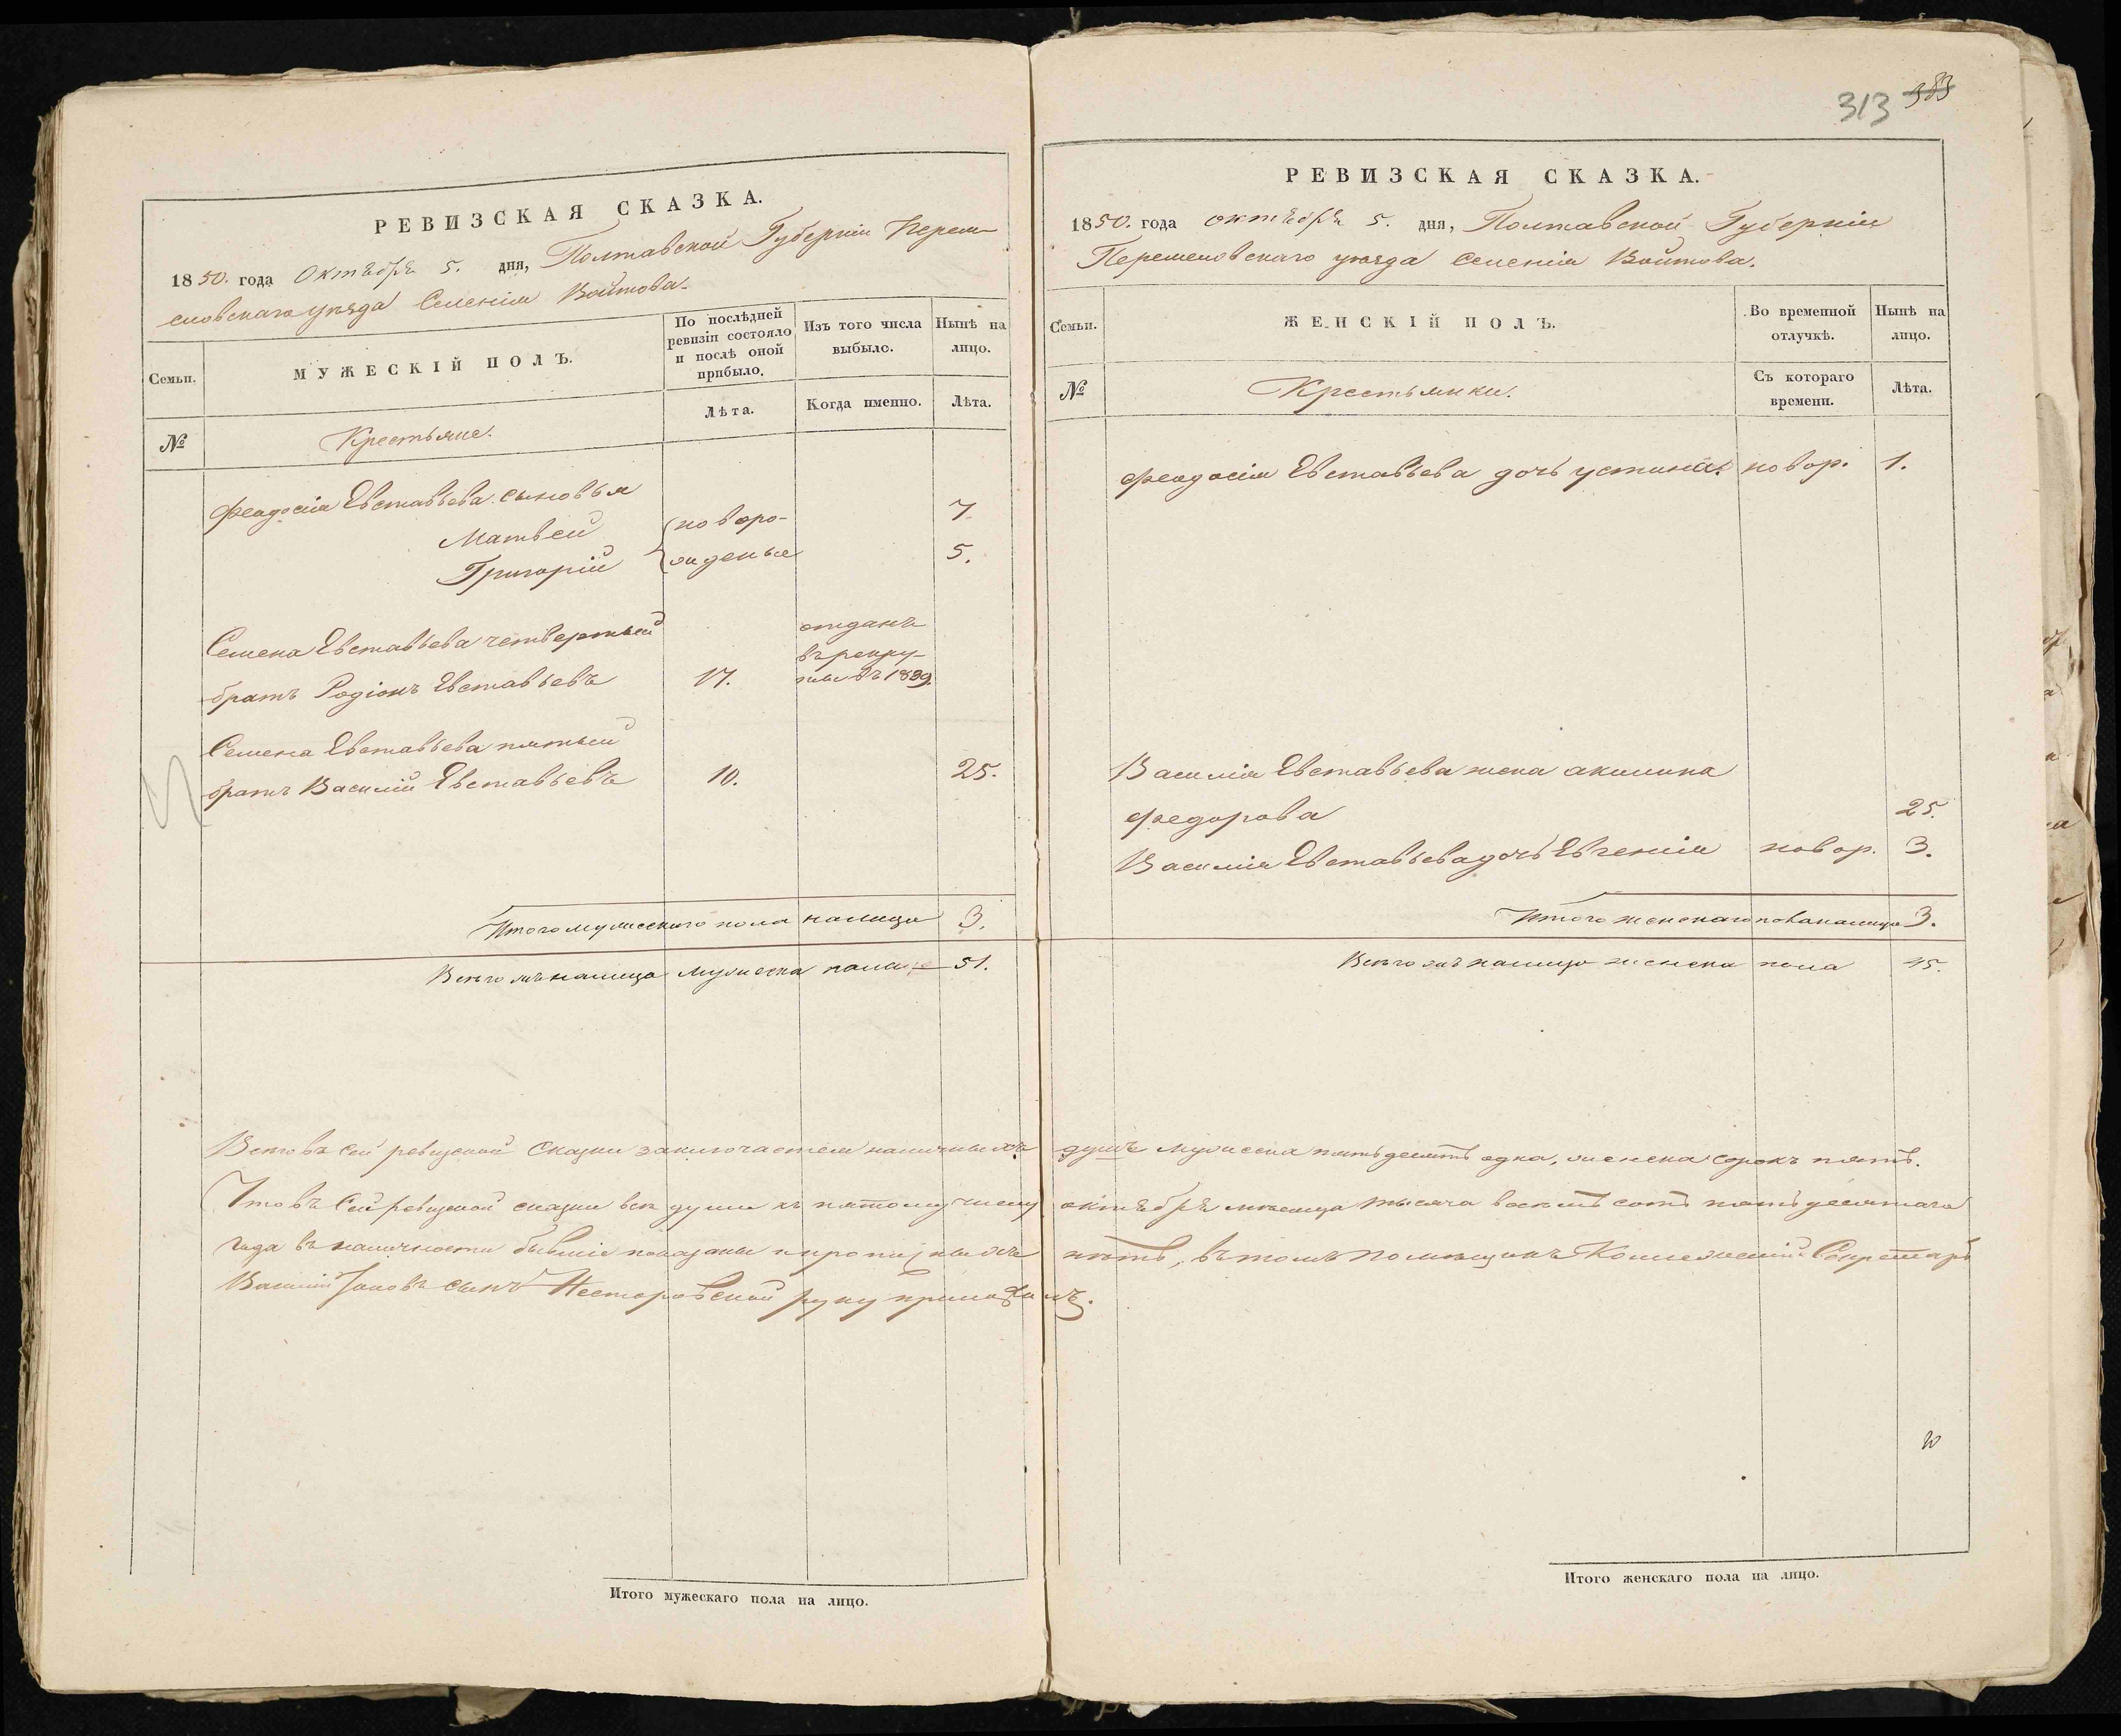 РЕВИЗСКАЯ СКАЗКА.
1850. года Октября 5. дня, Полтавской Губерніи Переяс-
ловскаго уѣзда Селенія Войтова.
Семьи.
МУЖЕСКІЙ ПОЛЪ.
По послѣдней
ревизіи состояло
и послѣ оной
прибыло.
Изъ того числа
выбыло.
Нынѣ на
лицо.
№
Крестьяне.
Лѣта.
Когда именно.
Лѣта.
Феодосія Евставьева сыновья
Матвей новоро- 7
Григорій жденые 5.
Семена Евставьева четвертый отданъ
въ рекру-
братъ Родіонъ Евставьевъ 17. ты въ 1839.
Семена Евставьева пятый
братъ Василий Евставьевъ 10. 25.
Итого мужескаго пола налицо 3.
Всего жъ налицо мужеска пола 51.
313 383
РЕВИЗСКАЯ СКАЗКА.
1850. года октября 5. дня, Полтавской Губерніи
Переясловскаго уѣзда селенія Войтова.
Семьи.
ЖЕНСКІЙ ПОЛЪ.
Во временной
отлучкѣ.
Нынѣ на
лицо.
№
Крестьянки.
Съ котораго
времени.
Лѣта.
Феодосія Евставьева дочь устинія новор. 1.
Василія Евставьева жена акилина
федорова 25.
Василія Евставьева дочь Евгенія новор. 3.
Итого женскаго пола налицо 3.
Всего жъ налицо женска пола 45.
Всего въ сей ревизской Сказки заключается наличныхъ душъ мужеска пятьдесятъ одна, женска сорокъ пять.
Что въ сей ревизской сказки всѣ души къ пятому числу октября мѣсяца тысяча восемь сотъ пятьдесятаго
года въ наличности бывшіе показаны и прописныхъ нѣтъ, въ томъ помѣщикъ Коллежскій Секретарь
Василий сынъ Несторовской руку приложилъ.
Итого мужескаго пола на лицо.
Итого женскаго пола на лицо.